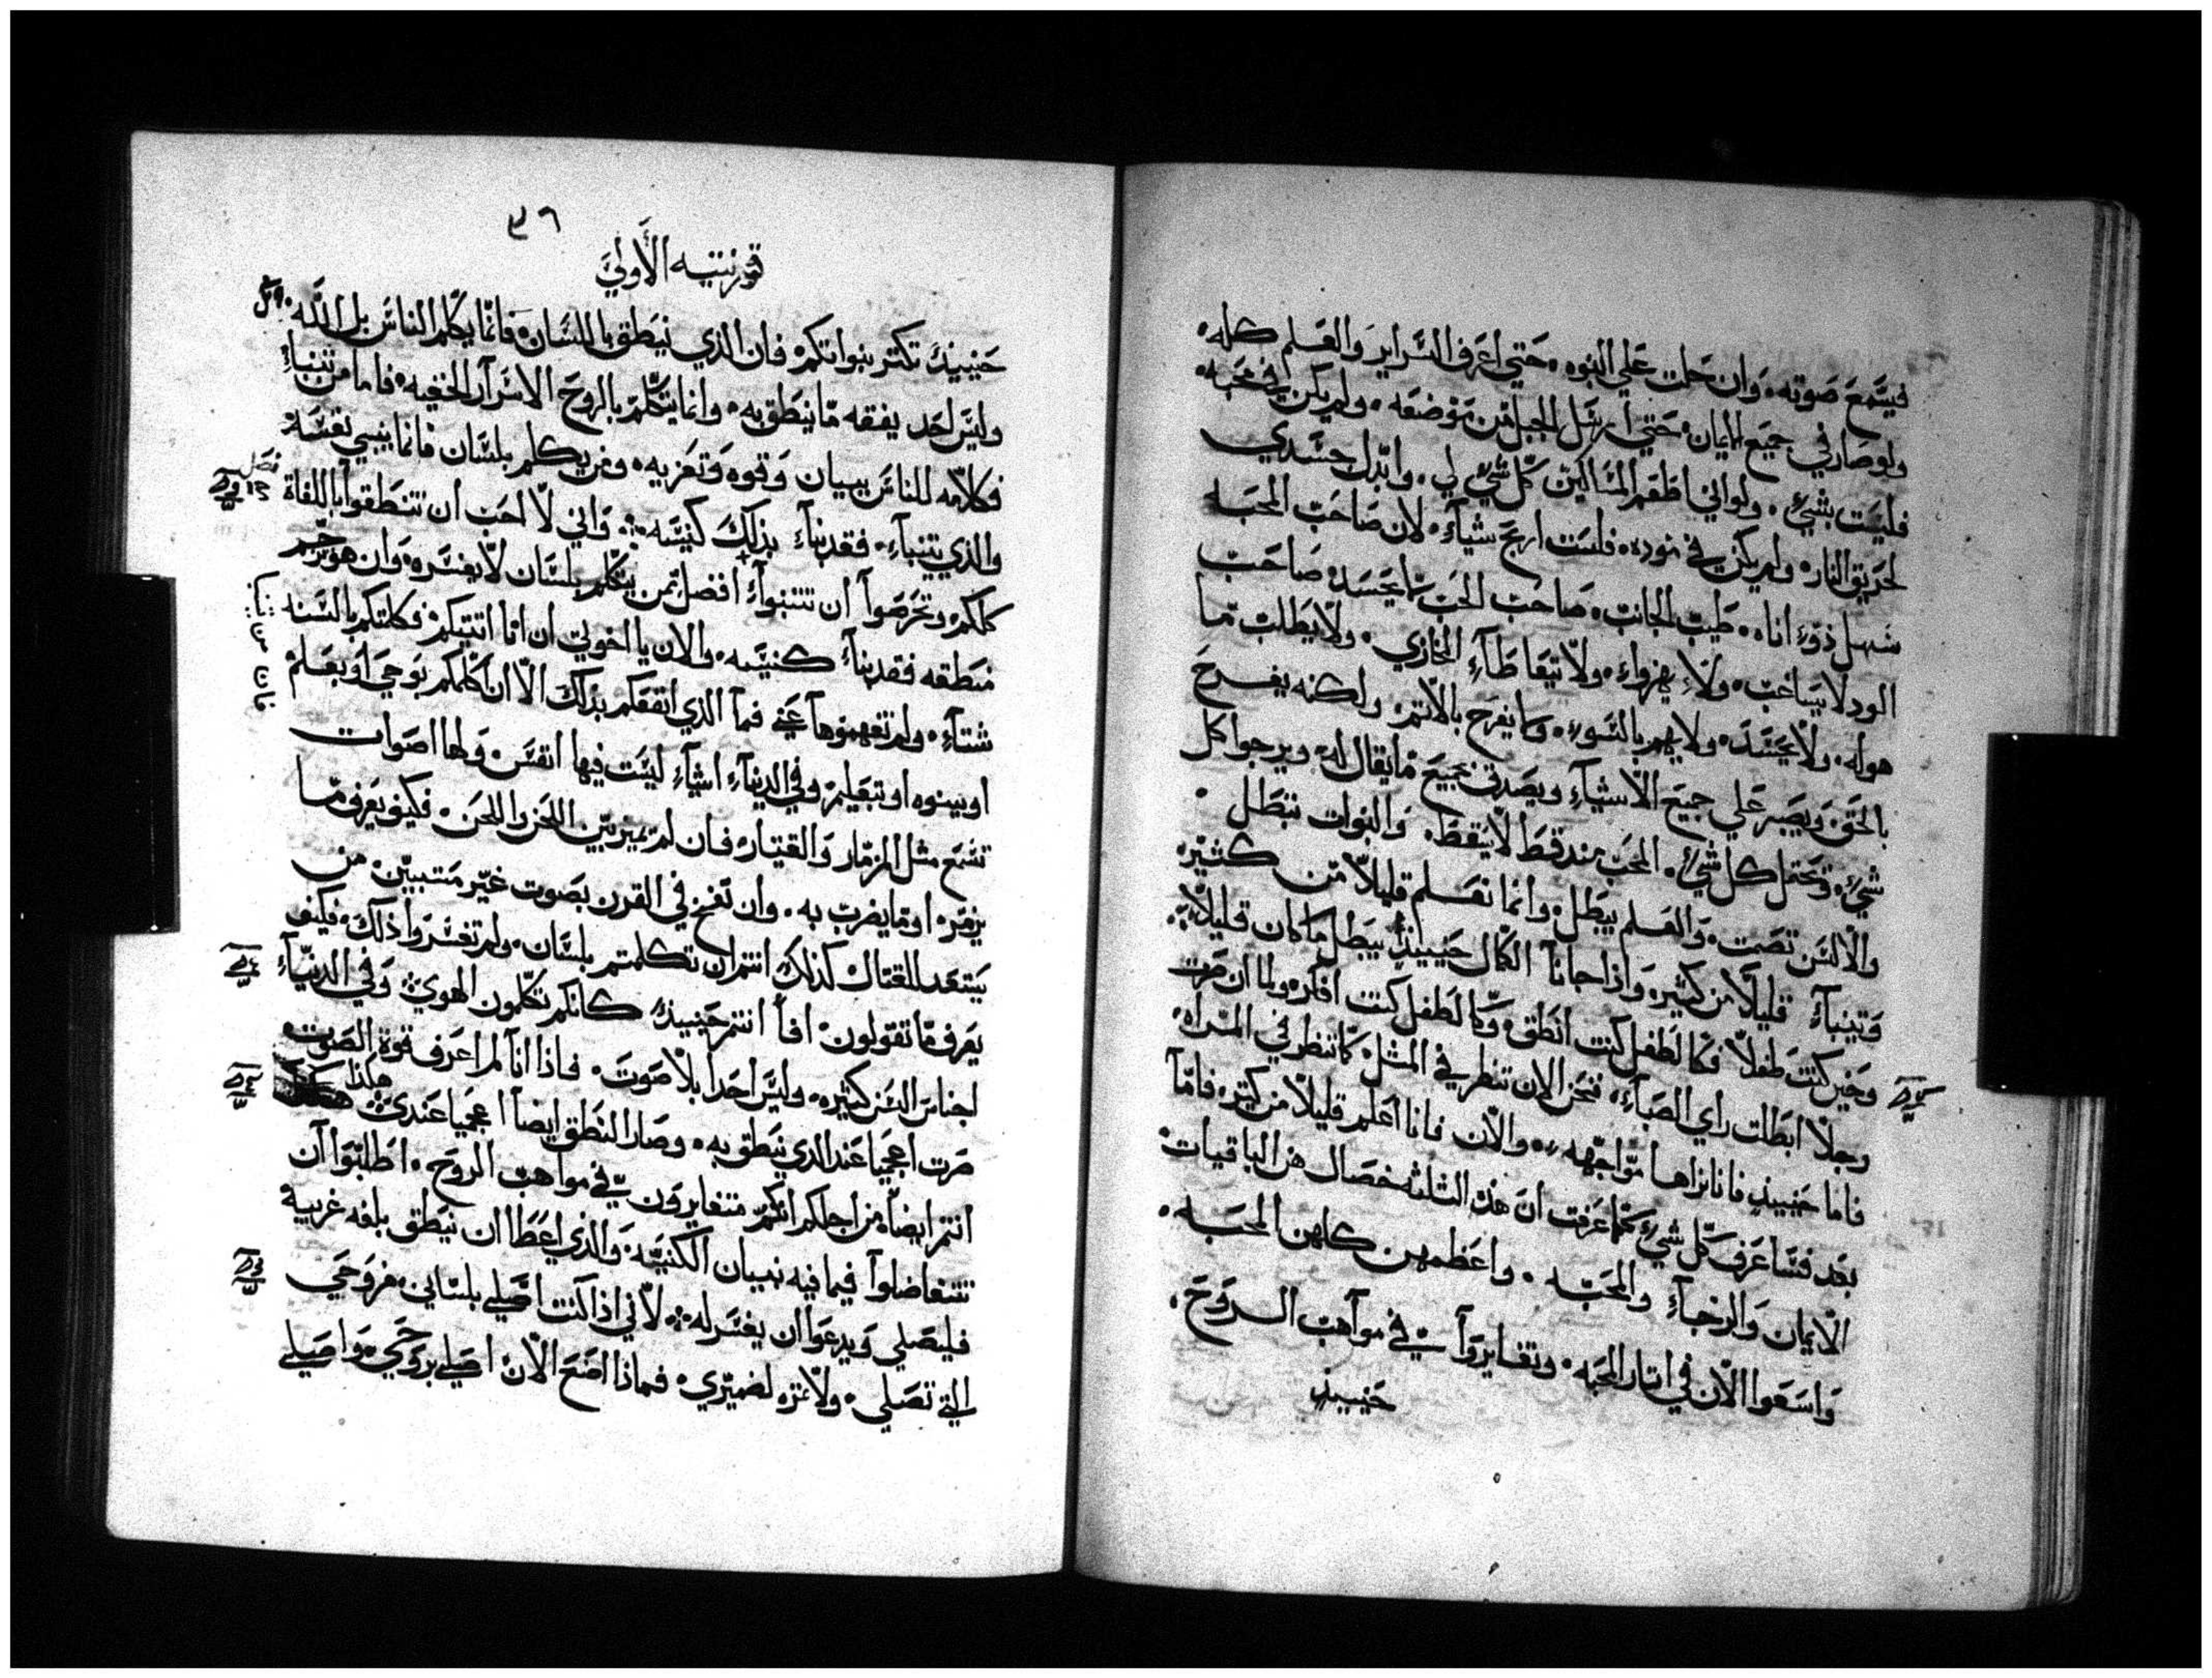 فيسَّمع صَوته۰ وَان حَلت عَلي النبوه۰ حَتي اعَرف السَّراير وَالعَلم كله۰
ولوصَار في جميَع الايمان۰ حَتي ارسَّل الجبل مّن مَوْضعَه۰ ولم يكن في محَبه۰
فليسَت بشيْ۰ ولواني اطعَم المسَاكين كلّ شيْ لي۰ وابّدل جسَّدي
لحرَيق النار۰ ولم يكن في موده۰ فلسَت اربَح شياءً۰ لان صَاحَبّ المحَبه
سَهل ذوْ اناه۰ طَيبّ الجانبّ۰ صَاحَبّ الحَبّ ما يحَسَد۰ صَاحَبّ
الود لا يسَاغبّ۰ ولاء يهزواء۰ ولاّ يتعَاطاء المخازي۰ ولاّ يطَلبّ مّا
هوله۰ ولاّ يحَتَدّ۰ ولا يهم بالسَّوء۰ وما يفرَح بالاّثم۰ ولكنه يفرحَ
بالحَقّ وَيصَبر عَلي جميَع الاّشياء ويصَدق بجميَع مْا يقال له۰ ويرجوا كل
شيْ۰ وَيحَتمل كل شيْ۰ المحَبّ مند قط لاّ يسَقط۰ وَالنبوات تبَطل۰
والاّلسَن تصَمت۰ وَالعَلم يبَطل۰ وانما نعَلم قليلاّ مّن كثيّر۰
وَتينباء قليلاّ من كثيره وَاذا جانا الكمال حَينيذ يبَطل ما كان قليلاّ۰
وَحَين كنت طفلاّ فكالطَفل كنت انطَق۰ وكالطَفل كنت افكر۰ ولما ان صَرت
رجلاّ ابَطلت راي الصَباء۰ فنحَن الان ننظر في المثل كما تنظر في المرّاه۰
فاما حَينيذ فاننا نراها مّواجّهه۰ والاّن فانا اعَلم قليلاّ من كثير۰ فامّا
بعَد فسَاعَرف كلّ شيْ كما عَرفت ان هذه الثلثه خصَال هن الباقيات
الاّيمان وَالرَجاء والمحَبّه۰ واعَظمهن كلهن المحَبه۰
وَاسَعَوا الاّن في اثار المحَبه۰ وتغايروا في مواهبّ الروَحَ۰
حَينيذ
٣٦
قورنتيه الأولي
حَينيذ تكثر بنواتكم۰ فان الذي ينَطق باللسَان فانما يكلم الناسَ بل اللّه۰
وليسَ احَد يفقه مّا ينَطق به۰ وانما يتكلّم بالروحَ الاسَرار الخفيه۰ فاما من تنباء
فكلامّه للناسَ ببيان وَقوه وَتعَزيه۰ ومن يكلم بلسَّان فانما يبني نفسَه
والذي يتنباء۰ فقد بناء بذلك كنيسَه۰ وَاني لاّ احَب ان تنطَقوا باللغاة
كلكم۰ وتحَرصَوا ان تتنبواء افضل ممن يتكلم بلسَّان لاّ يفسَره۰ وَان هو ترجم
منطَقه فقد بناء كنيسَه۰ والان يا اخوتي ان انا اتيتكم۰ وكلمتكم بالسَنه
شتاء۰ ولم تفهموها عَني فما الذي انفعَكم بذلك الاّ ان اكلمكم بوَحي اوبعَلم
اوبنبوه اوبتعَليم۰ وفي الدنياء اشياء ليسَت فيها انفسَ۰ ولها اصَوات
تسَمع مثل المزمّار وَالقيتار۰ فان لم يميز بيّن اللحَن وَاللحَن۰ فكيف يعَرف مّا
يزمّر۰ او مّا يضرب به۰ وان نفخ في القرن بصَوت غيّر مَتبيّن مّن
يَستعَد للقتال كذلك انتم ان تكلمتم بلسَّان۰ ولم تفسَّروا ذلك۰ فكيف
يعَرف مّا تقولون۰ افما انتم حَينيذ كانكم تكلمون الهوي۰ وَفي الدنياء
اجناسَ السَن كثيره۰ وليسَ احَداً بلاّ صَوت۰ فاذا انا لم اعَرف قوة الصَوت
صَرت اعجميا عَند الذي ينَطق به۰ وصَار الناطق ايضاً اعجميا عَندي هكذا
انتم ايضاً۰ من اجلكم انكم متغايرون في مواهبّ الروحَ۰ اطَلبّوا ان
تتفاضلوا فيما فيه بنيان الكنيسَه۰ وَالذي اعَطا ان ينَطق بلغه غريبة
فليصَلي وَيدعَوا ان يفسَر له۰ لاّني اذا كنت اصَلي بلسَاني۰ فروَحَي
التي تصَلي۰ ولاّ ثمره لضميّري۰ فماذا اصَنع الاّن اصَلي بروَحَي۰ وَاصَلي